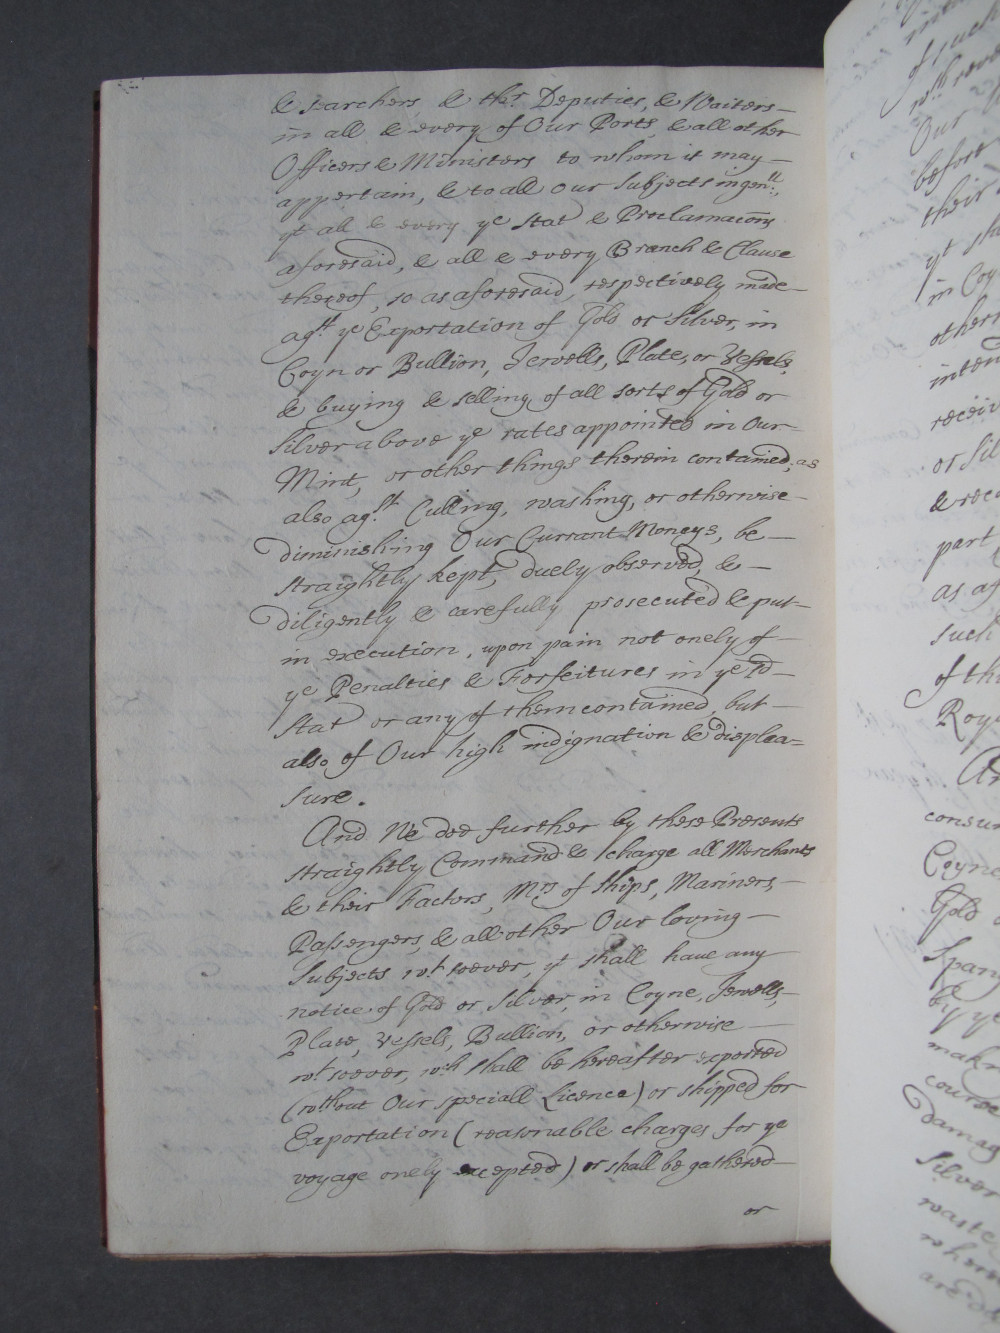 & searchers & thr Deputies, & Waiters
in all & every of Our Ports, & all other
Officers & Ministers to whom it may
appertain, & to all our subjects in genll,
yt all & every ye Stat & Proclamacons
aforesaid, & all & every Branch & Clause
thereof, so as aforesaid, respectively made
agst ye Exportation of Gold or Silver, in
Coyn or Bullion, Jewells, Plate, or Vessels,
& buying & selling of all sorts of Gold or
Silver above ye rates appointed in Our
Mint, or other things therein contained; as
also agst Culling, washing, or otherwise
diminishing Our Currant Moneys, be
straightly kept, duely observed, &
diligently & carefully prosecuted & put
in execution, upon pain not onely of
ye Penalties & Forfeitures in ye sd
Stat or any of them contained, but
also of Our high indignation & displea=
sure.
And We doe further by these Presents
straightly Command & charge all Merchants
& their Factors, Mrs of Ships, Mariners,
Passengers, & all other Our loving
Subjects wt soever, yt shall have any
notice of Gold or Silver, in Coyne, Jewells,
Plate, Vessels, Bullion, or otherwise
wt soever, wch shall be hereafter exported
(without Our speciall Licence) or shipped for
Exportation (reasonable charges for ye
voyage onely excepted) or shall be gathered
or
of such
wth
Our
before
their
yt
in Coy
others
inten
receiv
or Sil
& rec
part
as af
such
of th
Roy
An
consu
Coyne,
Gold
Span
by ye
mak
course
damag
Silver
waste
where
are